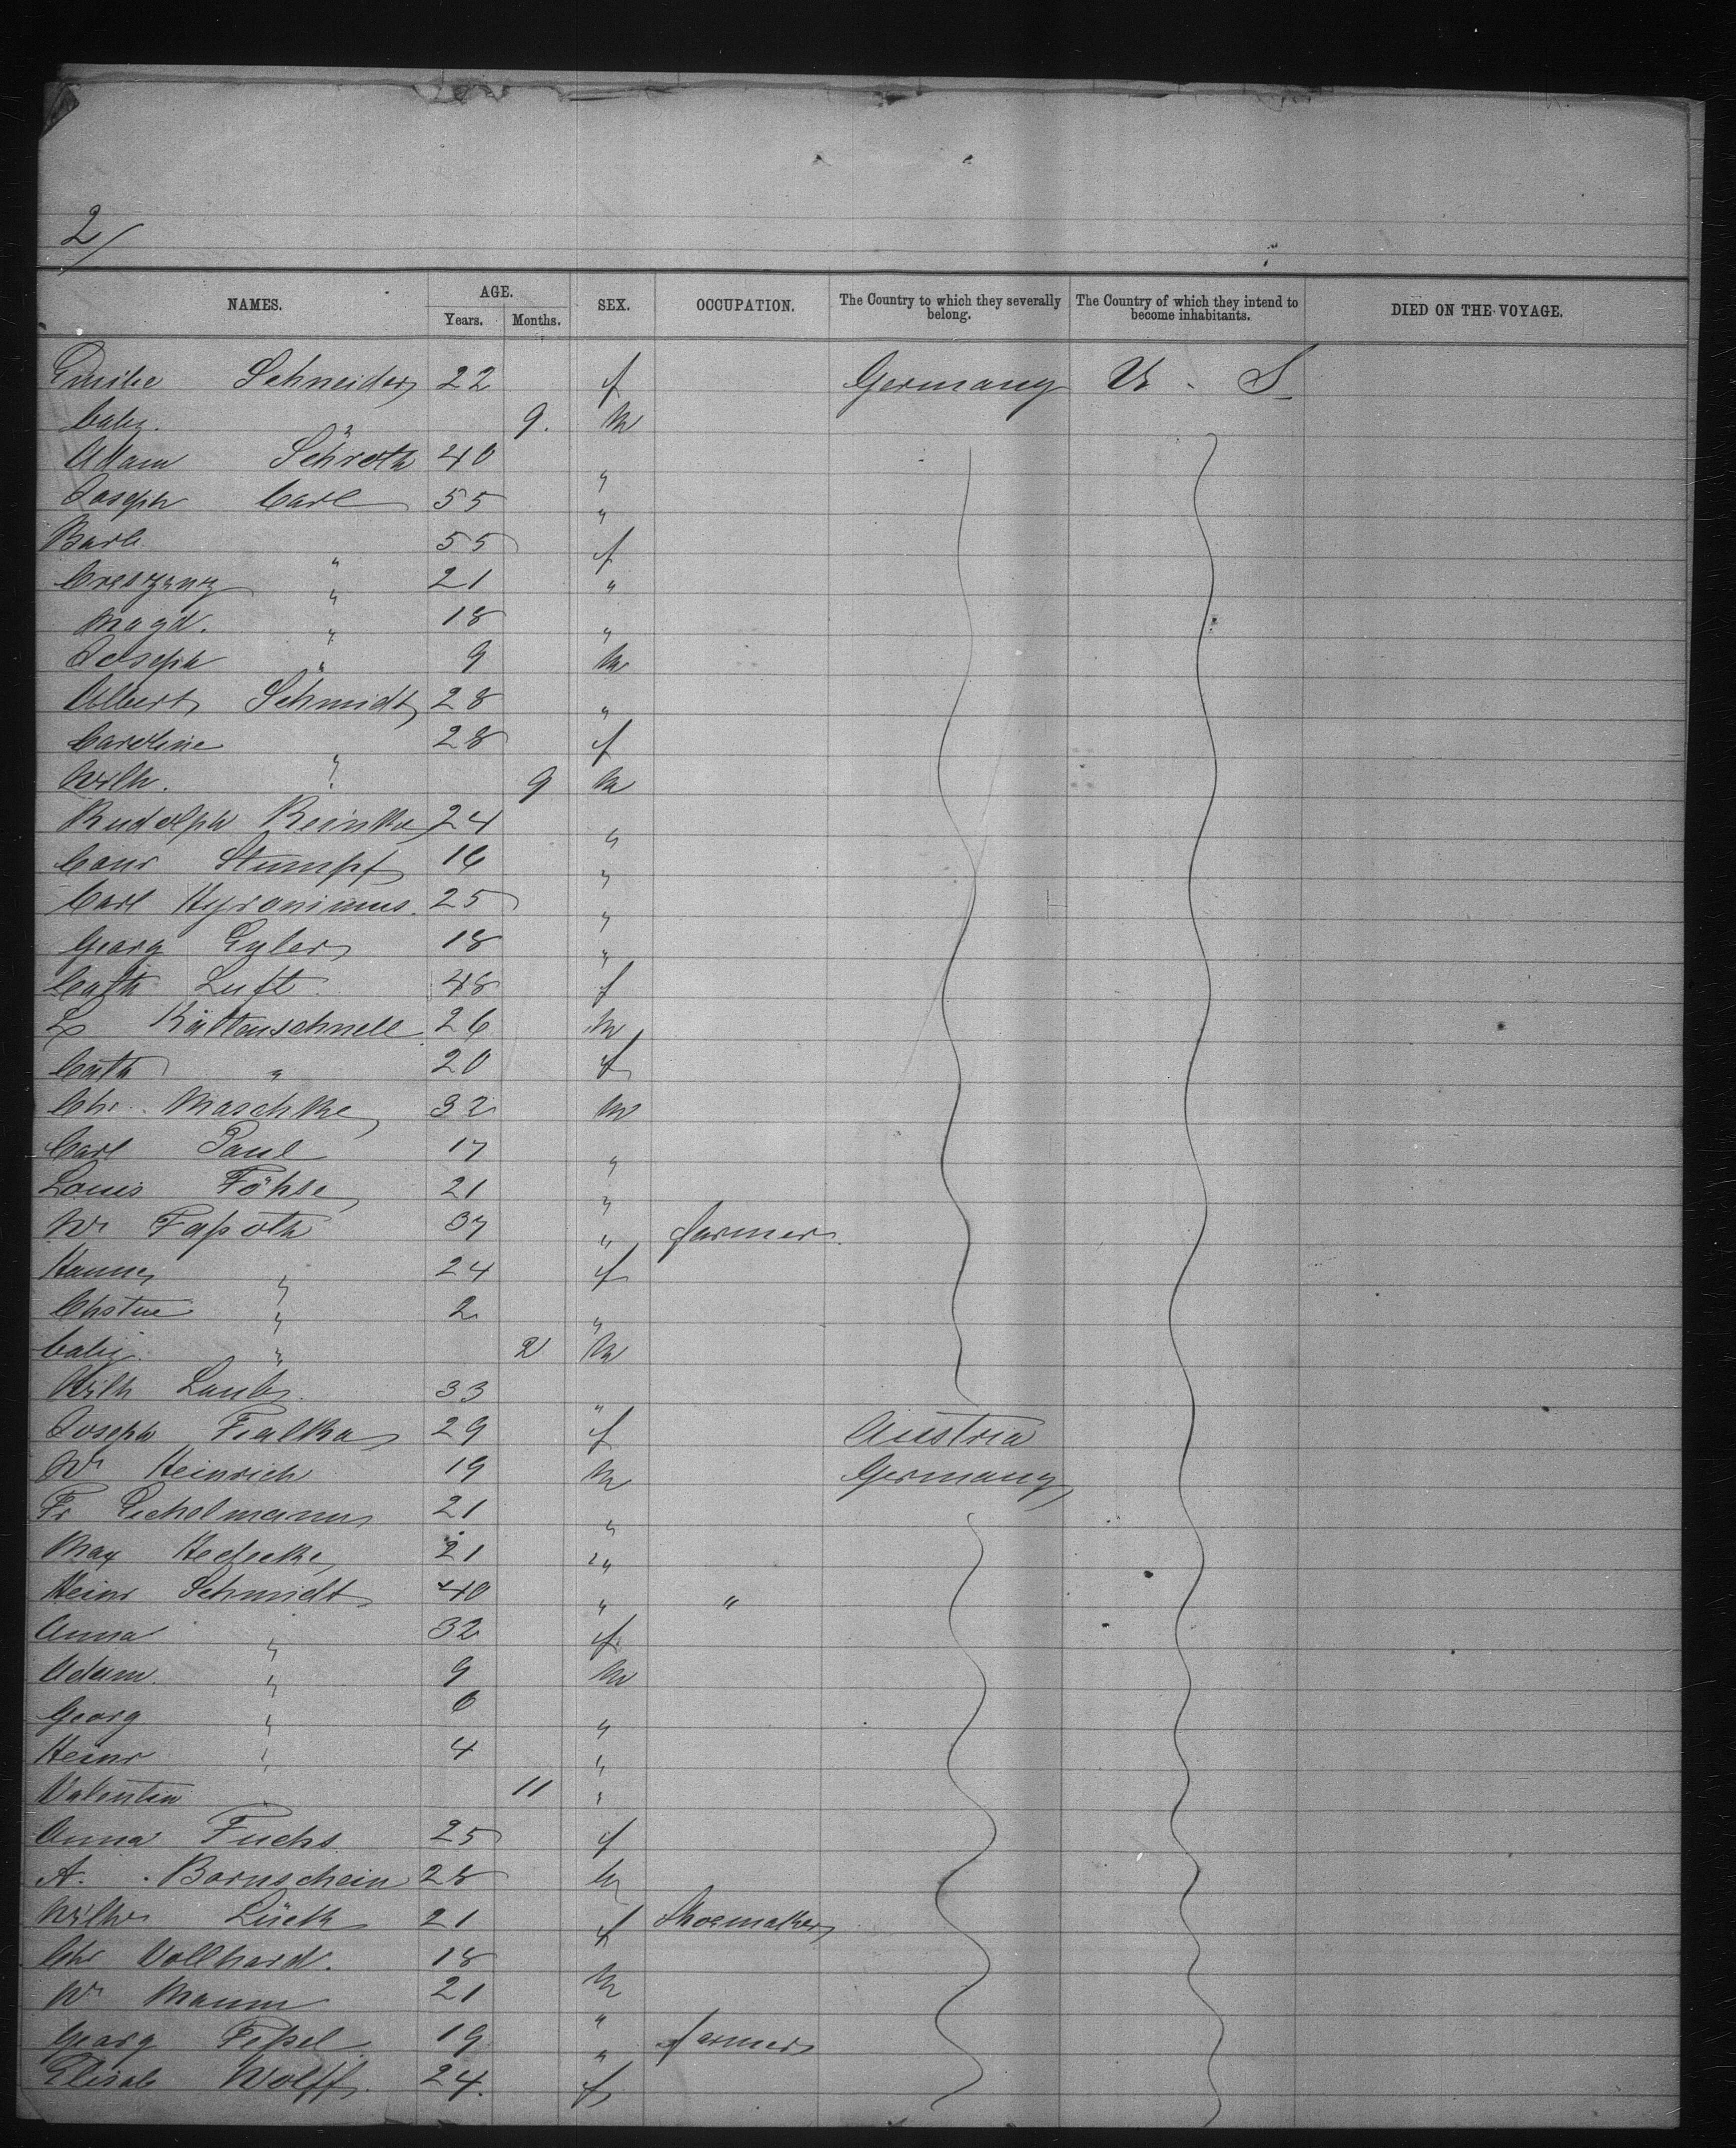 2/
NAMES. AGE. SEX. OCCUPATION. The Country to which they severally belong. The Country of which they intend to become inhabitants. DIED ON THE VOYAGE.
Years. Months.
Emilie Schneider 22 f Germany U. S
baby. " 9. m
Adam Schroth 40 "
Joseph Carl 55 "
Barb. " 55 f
Creszenz " 21 "
Magd. " 18 "
Joseph " 9 m
Albert Schmidt 28 "
Caroline " 28 f
Wilh. " 9 m
Rudolph Reinke 24 "
Conr Stumpf 16 "
Carl Hyronimus. 25 "
Georg Eyler 18 "
Cath Luft 48 f
L Kältenschnell 26 m
Cath " 20 f
Chr. Maschke 32 m
Carl Paul 17 "
LouisFöhse 21 "
Wm Faßoth 37 " farmer.
Hanne " 24 f
Chstne " 2 "
baby " 2 m
Wilh Laub 33 "
Joseph Fialka 29 f Austria
Wm Heinrich 19 m Germany
Fr 21 "
Max 21 "
Heinr Schmidt 40 " "
Anna " 32 f
Adam " 9 m
Georg " 6 "
Heinr " 4 "
Valentin 11 "
Anna Fuchs 25 f
A. Bornschein 28 m
Wilhe Lück 21 f Shoemaker
Chr Vollhard. 18 m
Wm Mann 21 "
Georg Feßel 19 " farmer
Elisab Wolff. 24. f